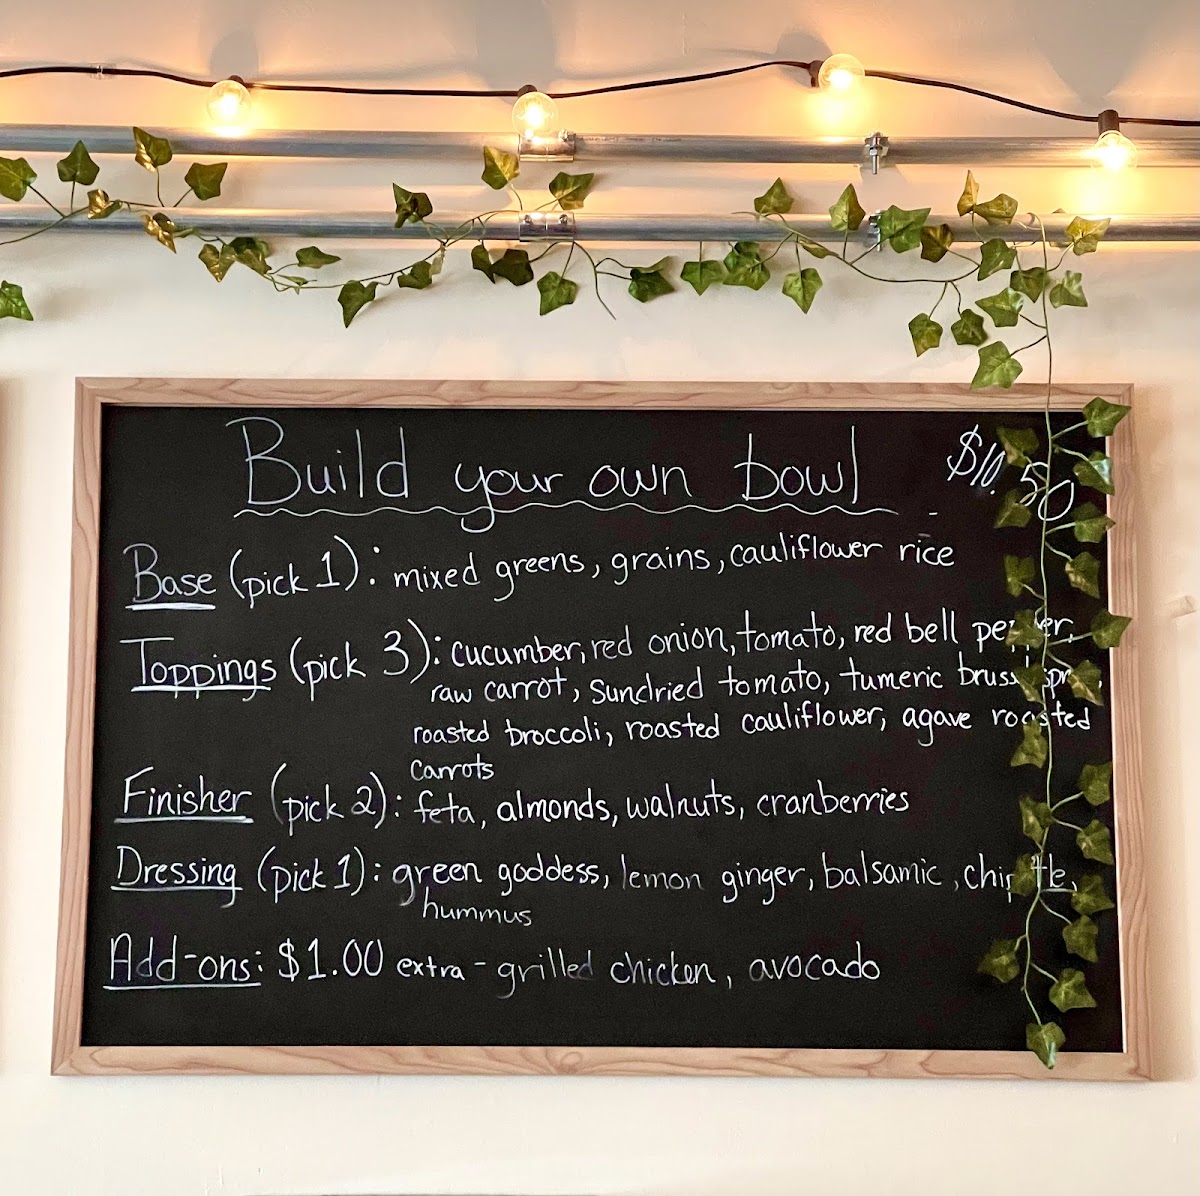 Build your own bowl $10.50
Base (pick 1): mixed greens, grains, cauliflower rice
Toppings (pick 3): cucumber, red onion, tomato, red bell pepper,
raw carrot, sundried tomato, tumeric
roasted broccoli, roasted cauliflower, agave roasted
carrots
Finisher (pick 2): feta, almonds, walnuts, cranberries
Dressing (pick 1): green goddess, lemon ginger, balsamic, chipotle,
hummus
Add-ons: $1.00 extra - grilled chicken, avocado